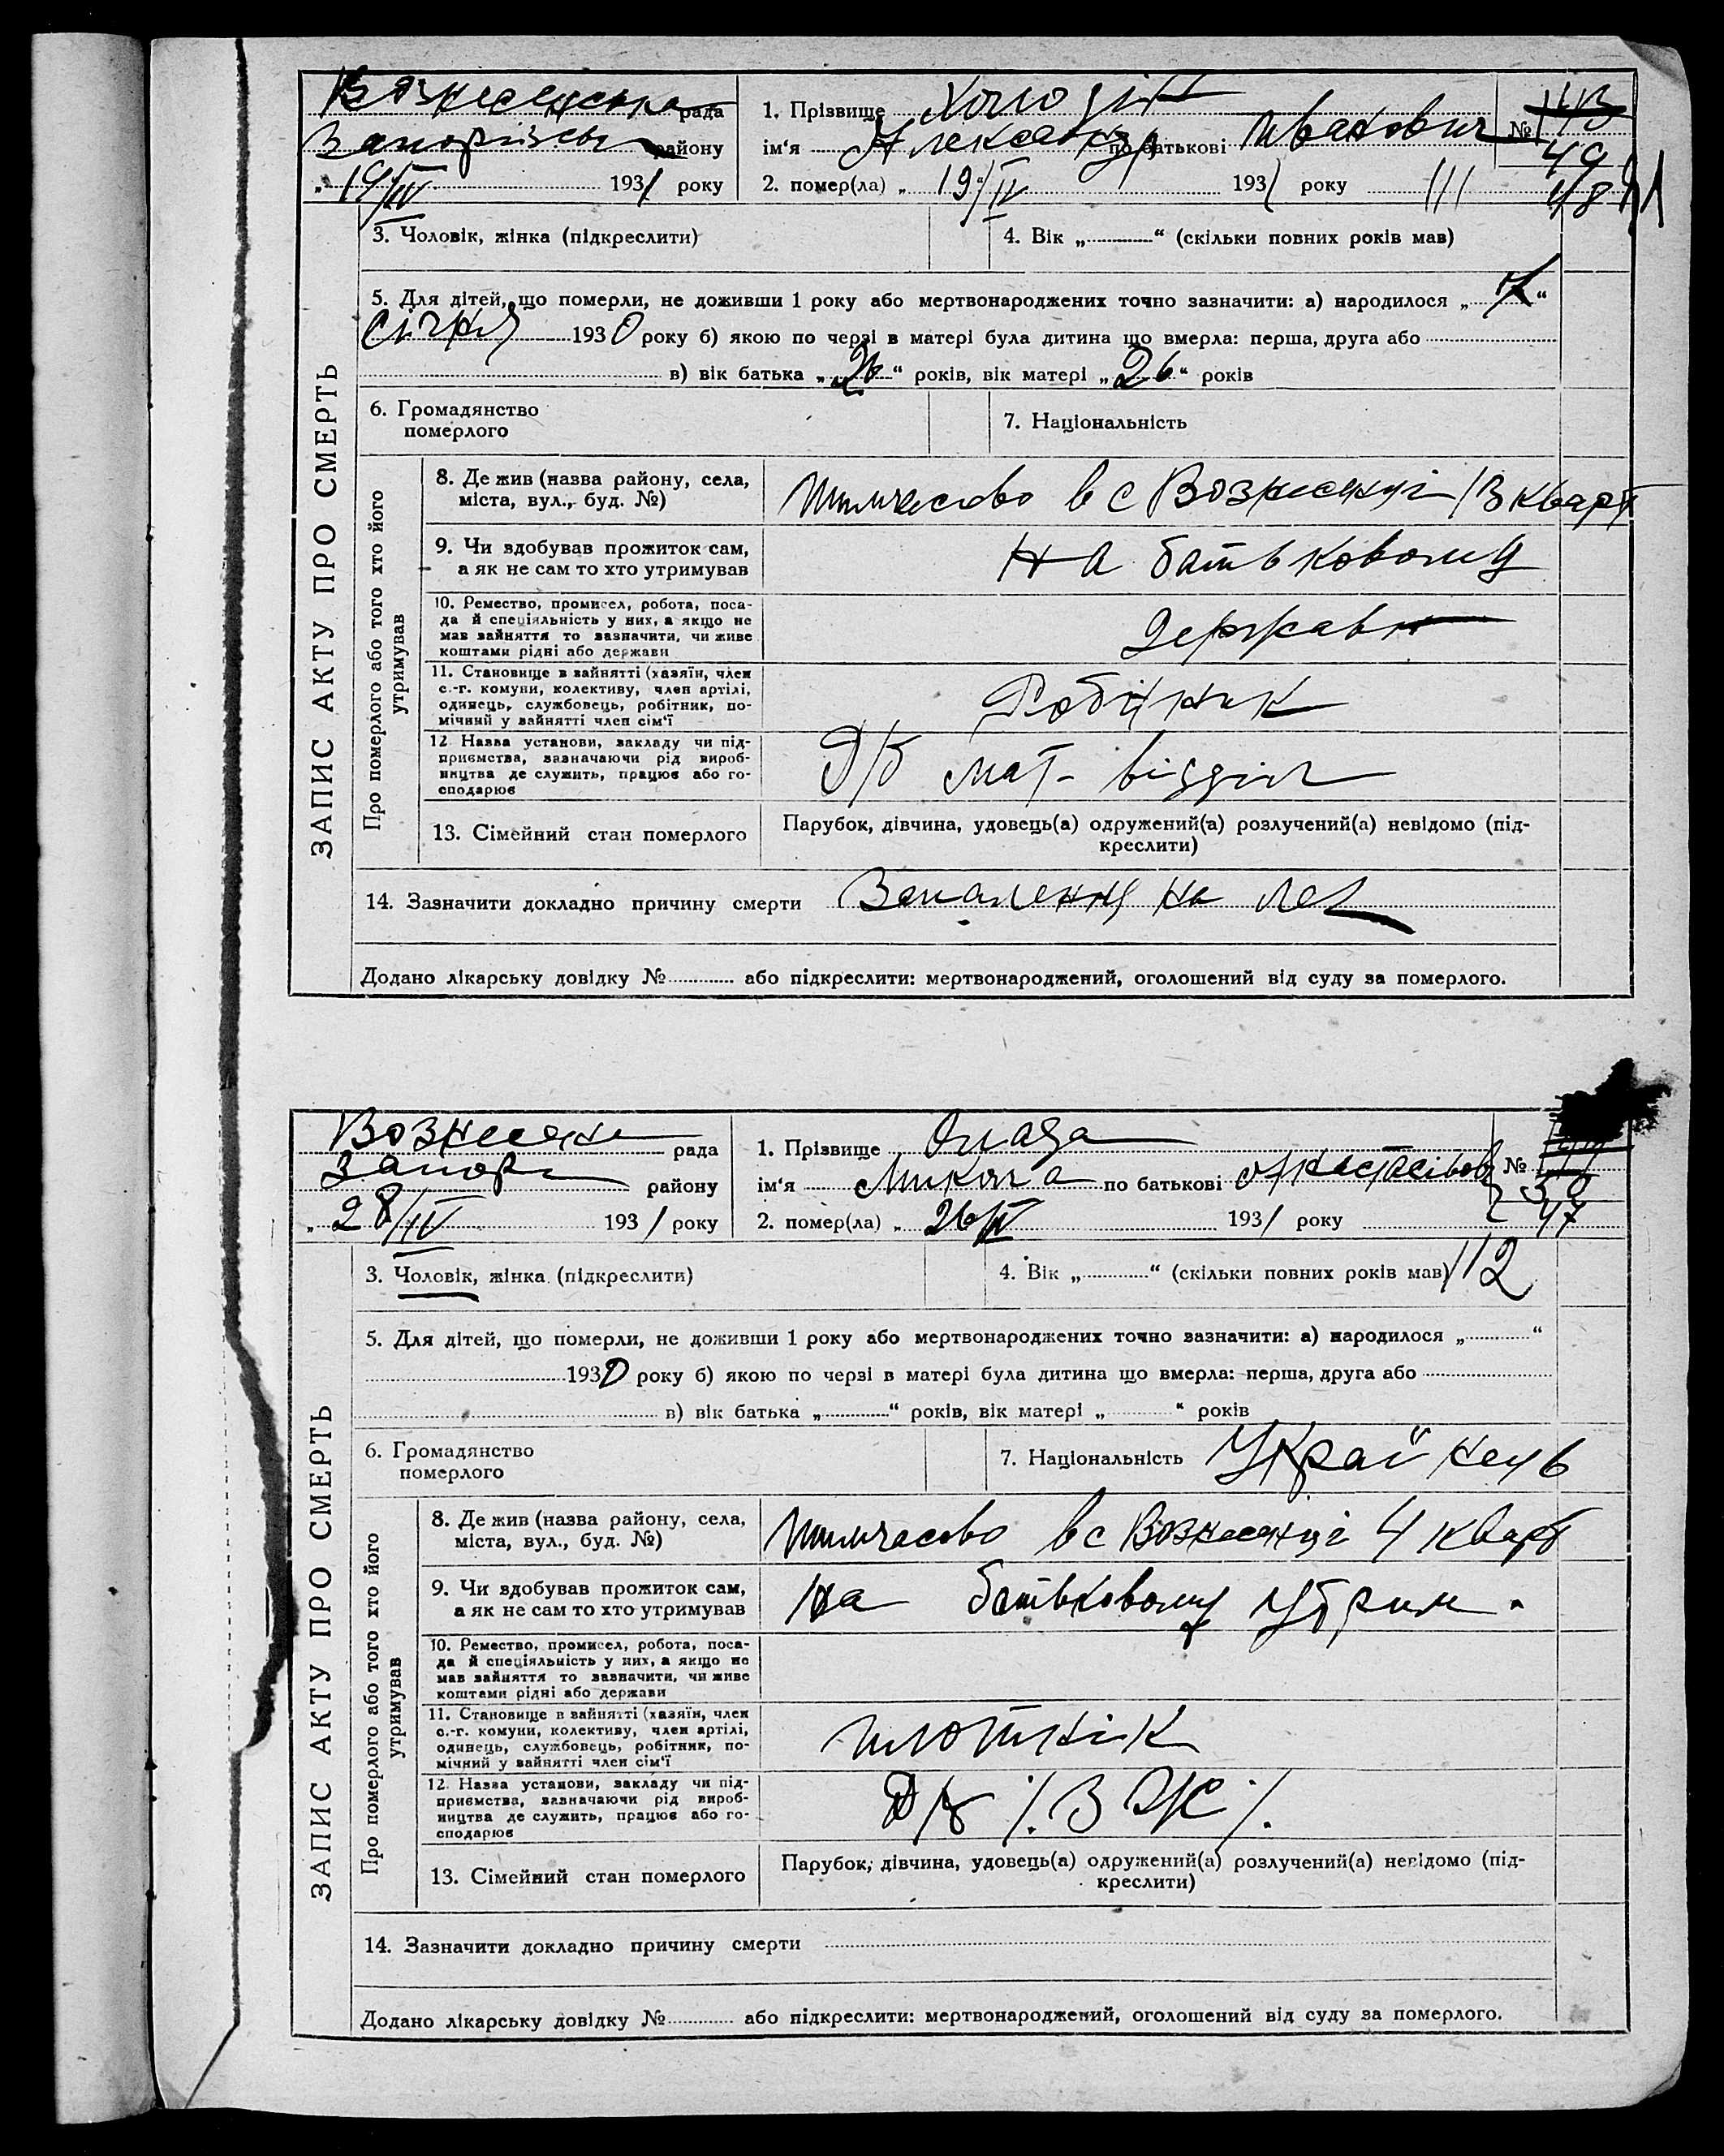 Вознесенська рада
Запорізьк району
„ 19/IV 1931 року
1. Прізвище
ім'я Александр по батькові Иванович №
49
48
2. помер(ла) „ 19/IV 1931 року
3. Чоловік, жінка (підкреслити)
4. Вік „ “ (скільки повних років мав)
5. Для дітей, що померли, не доживши 1 року або мертвонароджених точно зазначити: а) народилося „ “
січня 1930 року б) якою по черзі в матері була дитина що вмерла: перша, друга або
в) вік батька „26“ років, вік матері „26“ років
6. Громадянство
померлого
7. Національність
ЗАПИС АКТУ ПРО СМЕРТЬ
Про померлого або того хто його
утримував
8. Де жив (назва району, села,
міста, вул., буд. №)
тимчасово в с Вознесенці 13 кварт
9. Чи здобував прожиток сам,
а як не сам то хто утримував
на батьковому
10. Ремество, промисел, робота, поса-
да й спеціяльність у них, а якщо не
мав зайняття то зазначити, чи живе
коштами рідні або держави
державн
11. Становище в зайнятті (хазяїн, член
с.-г. комуни, колективу, член артілі,
одинець, службовець, робітник, по-
мічний у зайнятті член сім'ї
Робітник
12. Назва установи, закладу чи під-
приємства, зазначаючи рід вироб-
ництва де служить, працює або го-
сподарює
Д/б мат- відділ
13. Сімейний стан померлого
Парубок, дівчина, удовець(а) одружений(а) розлучений(а) невідомо (під-
креслити)
14. Зазначити докладно причину смерти Запалення на лег
Додано лікарську довідку № або підкреслити: мертвонароджений, оголошений від суду за померлого.
Вознесенк рада
Запоріз району
„ 28/IV 1931 року
1. Прізвище
ім'я Микола по батькові Анастасіїов №
50
47
2. помер(ла) „ 26/IV 1931 року
3. Чоловік, жінка (підкреслити)
4. Вік „ “ (скільки повних років мав) 1 1/2
5. Для дітей, що померли, не доживши 1 року або мертвонароджених точно зазначити: а) народилося „ “
1930 року б) якою по черзі в матері була дитина що вмерла: перша, друга або
в) вік батька „ “ років, вік матері „ “ років
6. Громадянство
померлого
7. Національність Українець
ЗАПИС АКТУ ПРО СМЕРТЬ
Про померлого або того хто його
утримував
8. Де жив (назва району, села,
міста, вул., буд. №)
тимчасово в с Вознесенці 4 кварт
9. Чи здобував прожиток сам,
а як не сам то хто утримував
на батьковому утрим.
10. Ремество, промисел, робота, поса-
да й спеціяльність у них, а якщо не
мав зайняття то зазначити, чи живе
коштами рідні або держави
11. Становище в зайнятті (хазяїн, член
с.-г. комуни, колективу, член артілі,
одинець, службовець, робітник, по-
мічний у зайнятті член сім'ї
плотнік
12. Назва установи, закладу чи під-
приємства, зазначаючи рід вироб-
ництва де служить, працює або го-
сподарює
Д/б
13. Сімейний стан померлого
Парубок, дівчина, удовець(а) одружений(а) розлучений(а) невідомо (під-
креслити)
14. Зазначити докладно причину смерти
Додано лікарську довідку № або підкреслити: мертвонароджений, оголошений від суду за померлого.